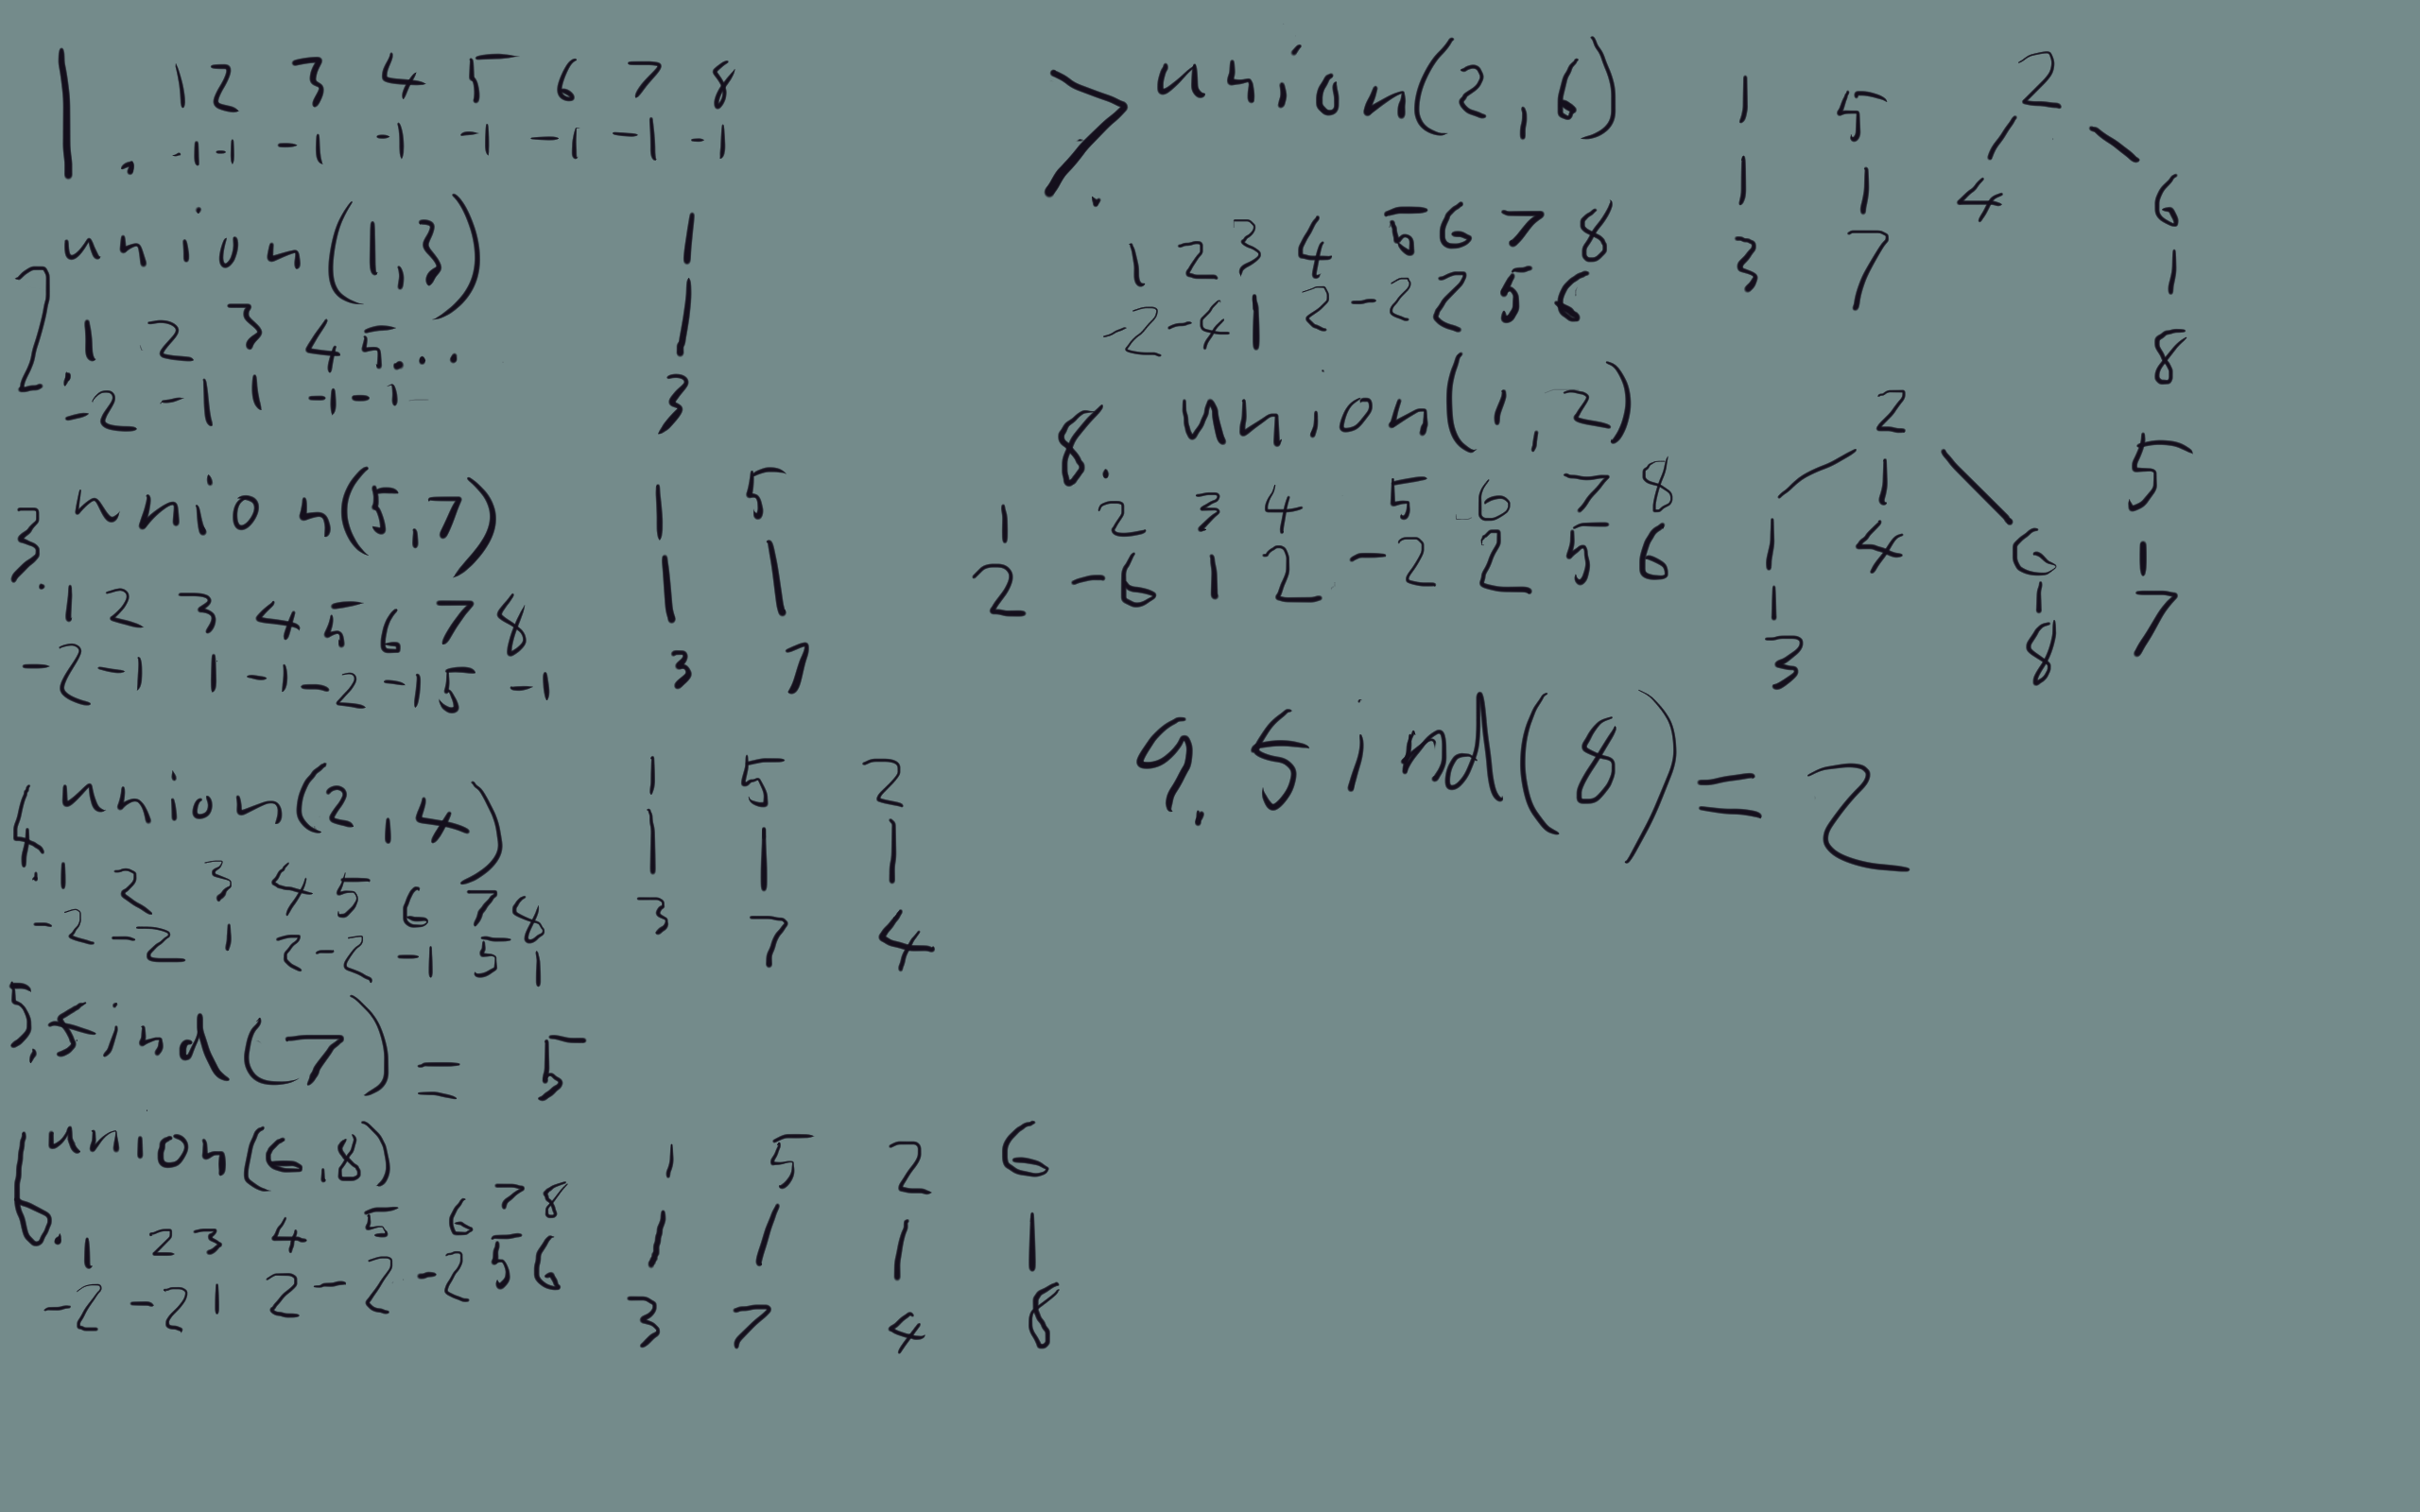 1. 1 2 3 4 5 6 7 8
-1 -1 -1 -1 -1 -1 -1 -1
2. union(1,3)
1 2 3 4 5...
-2 -1 1 -1 -1
1
3
3. union(5,7)
1 2 3 4 5 6 7 8
-2 -1 1 -1 -2 -1 5 -1
1 5
3 7
4. union(2,4)
1 2 3 4 5 6 7 8
-2 -2 1 2 -2 -1 5 1
1 5 2
3 7 4
5. find(7) = 5
6. union(6,8)
1 2 3 4 5 6 7 8
-2 -2 1 2 -2 -2 5 6
1 5 2 6
3 7 4 8
7. union(2,6)
1 2 3 4 5 6 7 8
-2 -4 1 2 -2 2 5 6
1 5 2
4 6
3 7
8
8. union(1,2)
1 2 3 4 5 6 7 8
2 -6 1 2 -2 2 5 6
2 5
1 4 6
7
3 8
9. find(8) = 2